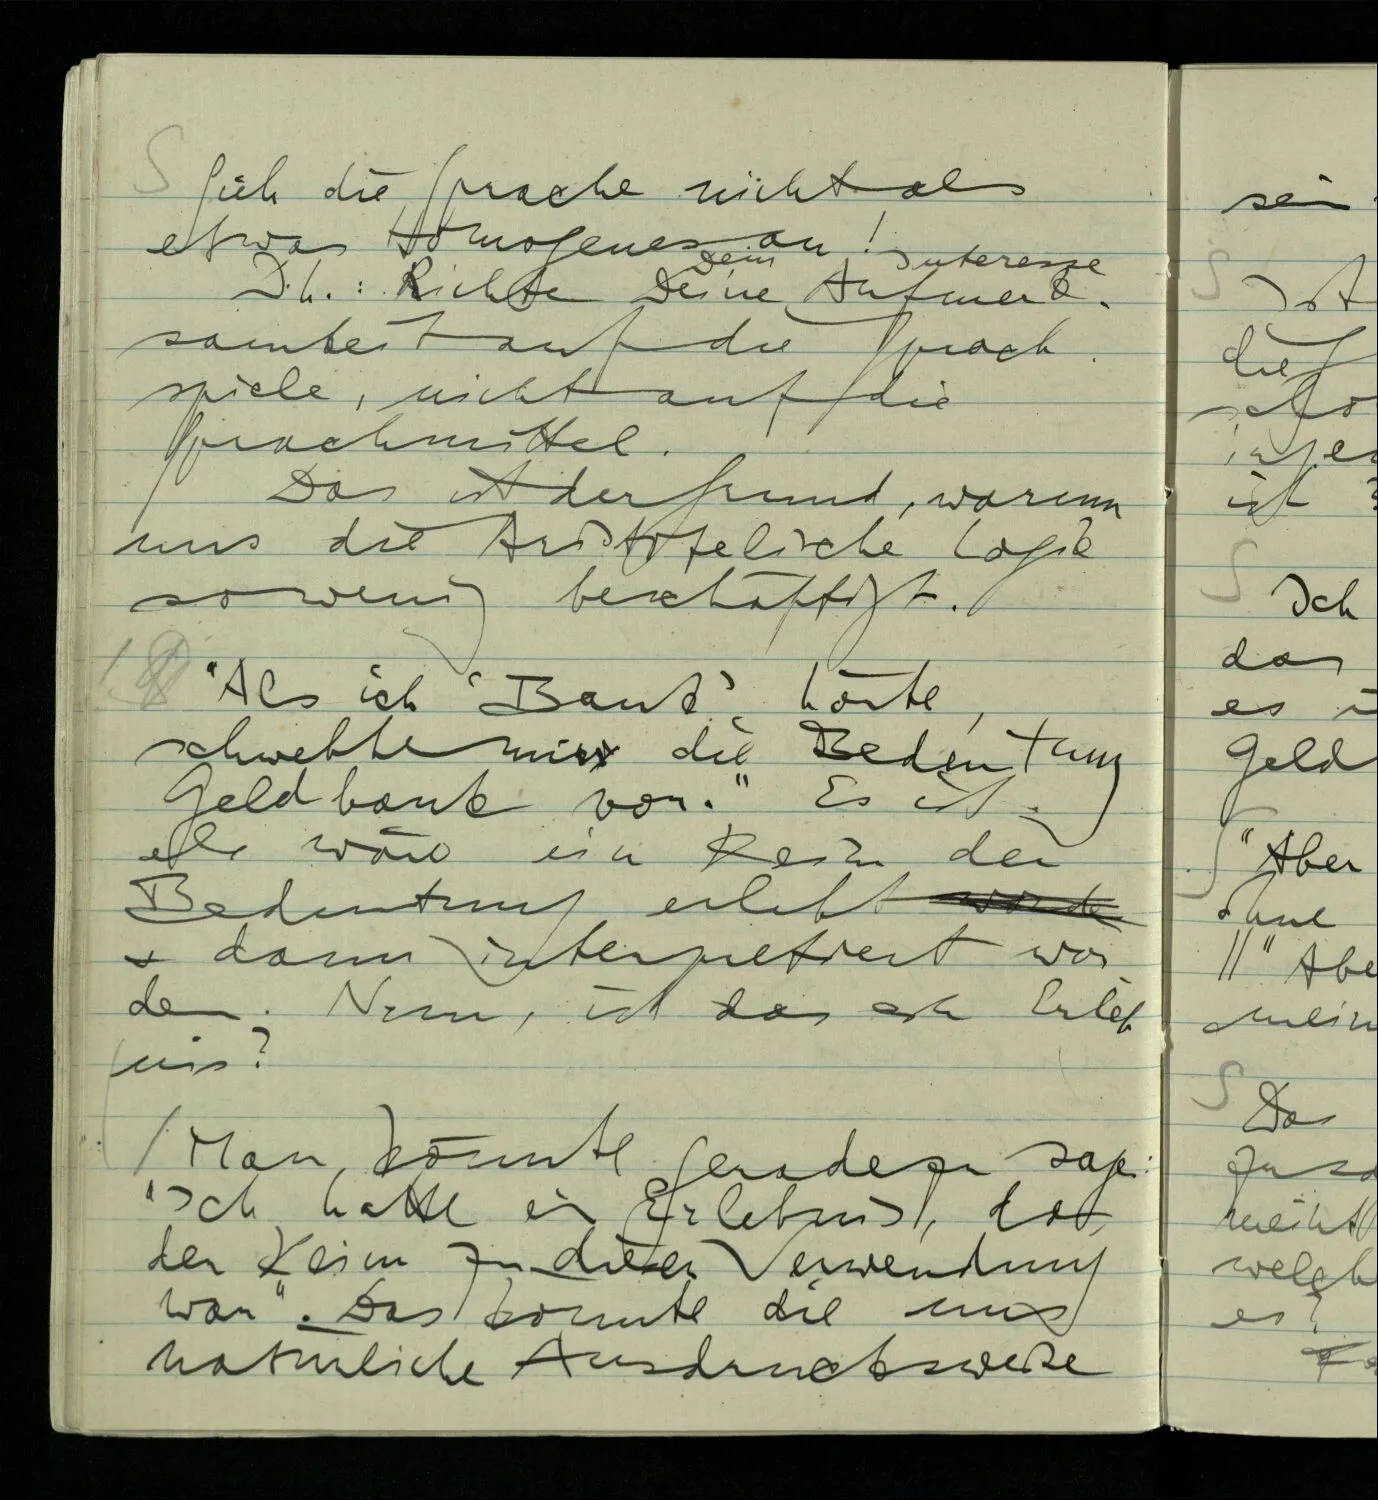 S Sieh die Sprache nicht als
etwas Homogenes an!
Dein Interesse
D.h.: Richte Deine Aufmerk-
samkeit auf die Sprach-
spiele, nicht auf die
Sprachmittel.
Das ist der Grund, warum
uns die Aristotelische Logik
so wenig beschäftigt.
"Als ich 'Bank' hörte,
schwebte mir die Bedeutung
Geldbank vor." Es ist
als wäre ein Keim der
Bedeutung erlebt worden
& dann interpretiert wor
den. Nun, ist das ein Erleb
nis?
/ Man könnte geradezu sagen:
"Ich hatte ein Erlebnis, das
der Keim zu dieser Verwendung
war". Das könnte die uns
natürliche Ausdrucksweise
sein
S
Ist
die
ist ?
S
Ich
das
es
Geld
S "Aber
ohne
|| "Abe
mein
S Das
zu
welch
es?